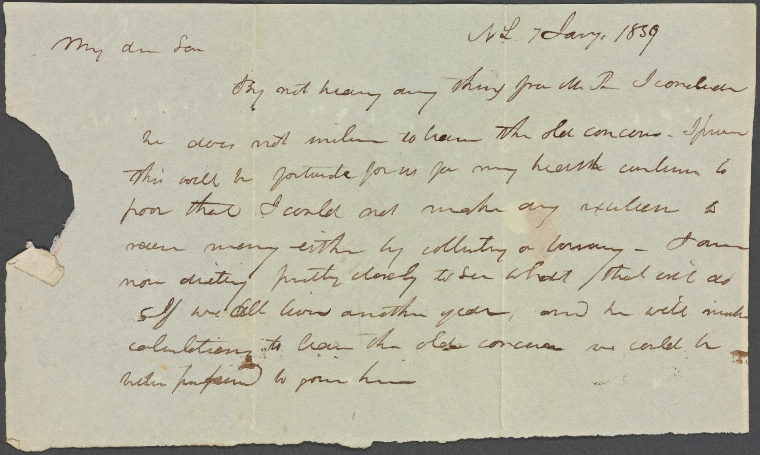 NL 7 Jany. 1839
My dr Son
By not hearing any thing from Mr P. I conclude
he does not incline to leave the old concern - I presume
this will be fortunate for us for my health continues so
poor that I could not make any exertion to
raise money either by collecting or borrowing - I am
now dieting pretty closely to see what that will do
If we all live another year, and he will make
calculations to leave the old concern we could be
better prepared to join him